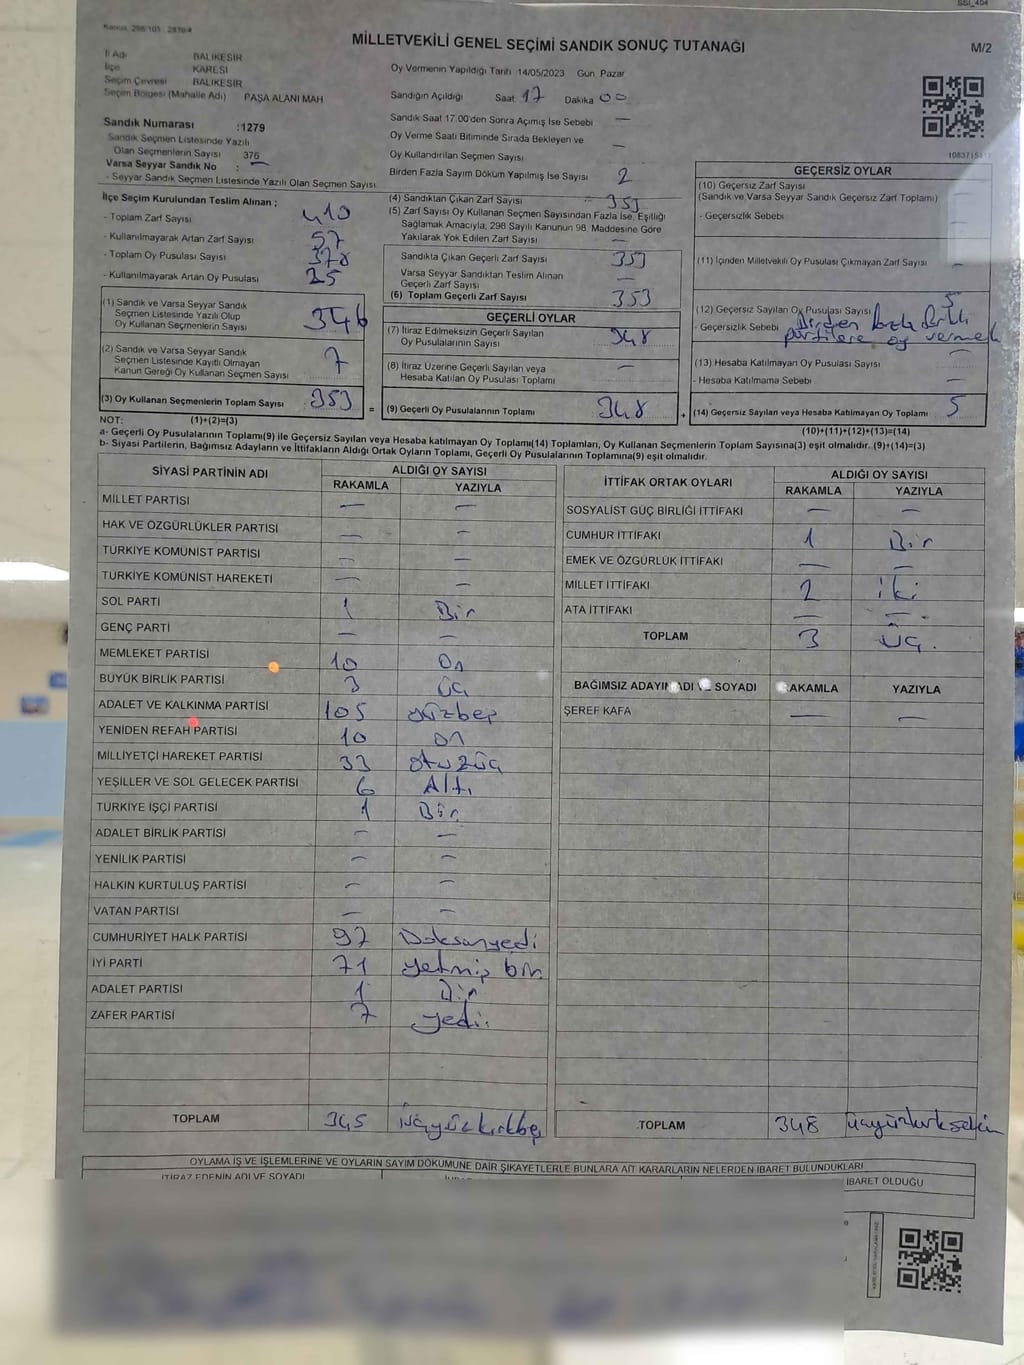 SSİ_404
MİLLETVEKİLİ GENEL SEÇİMİ SANDIK SONUÇ TUTANAĞI
M/2
İl Adı BALIKESİR
İlçe KARESİ
Seçim Çevresi BALIKESİR
Seçim Bölgesi (Mahalle Adı) PAŞA ALANI MAH
Sandık Numarası :1279
Sandık Seçmen Listesinde Yazılı
Olan Seçmenlerin Sayısı 376
Varsa Seyyar Sandık No : —
- Seyyar Sandık Seçmen Listesinde Yazılı Olan Seçmen Sayısı
Oy Vermenin Yapıldığı Tarih 14/05/2023 Gün Pazar
Sandığın Açıldığı Saat 17 Dakika 00
Sandık Saat 17.00'den Sonra Açımış İse Sebebi —
Oy Verme Saati Bitiminde Sırada Bekleyen ve
Oy Kullandırılan Seçmen Sayısı —
Birden Fazla Sayım Döküm Yapılmış İse Sayısı 2
İlçe Seçim Kurulundan Teslim Alınan ;
- Toplam Zarf Sayısı 410
- Kullanılmayarak Artan Zarf Sayısı 57
- Toplam Oy Pusulası Sayısı 378
- Kullanılmayarak Artan Oy Pusulası 25
(1) Sandık ve Varsa Seyyar Sandık
Seçmen Listesinde Yazılı Olup
Oy Kullanan Seçmenlerin Sayısı 346
(2) Sandık ve Varsa Seyyar Sandık
Seçmen Listesinde Kayıtlı Olmayan
Kanun Gereği Oy Kullanan Seçmen Sayısı 7
(3) Oy Kullanan Seçmenlerin Toplam Sayısı 353
(4) Sandıktan Çıkan Zarf Sayısı 353
(5) Zarf Sayısı Oy Kullanan Seçmen Sayısından Fazla İse, Eşitliği
Sağlamak Amacıyla, 298 Sayılı Kanunun 98. Maddesine Göre
Yakılarak Yok Edilen Zarf Sayısı —
Sandıkta Çıkan Geçerli Zarf Sayısı 353
Varsa Seyyar Sandıktan Teslim Alınan
Geçerli Zarf Sayısı —
(6) Toplam Geçerli Zarf Sayısı 353
GEÇERLİ OYLAR
(7) İtiraz Edilmeksizin Geçerli Sayılan
Oy Pusulalarının Sayısı 348
(8) İtiraz Üzerine Geçerli Sayılan veya
Hesaba Katılan Oy Pusulası Toplamı —
= (9) Geçerli Oy Pusulalarının Toplamı 348 +
GEÇERSİZ OYLAR
(10) Geçersiz Zarf Sayısı
(Sandık ve Varsa Seyyar Sandık Geçersiz Zarf Toplamı)
- Geçersizlik Sebebi
(11) İçinden Milletvekili Oy Pusulası Çıkmayan Zarf Sayısı
(12) Geçersiz Sayılan Oy Pusulası Sayısı 5
- Geçersizlik Sebebi Birden fazla farklı
partilere oy vermek
(13) Hesaba Katılmayan Oy Pusulası Sayısı —
- Hesaba Katılmama Sebebi —
(14) Geçersiz Sayılan veya Hesaba Katılmayan Oy Toplamı 5
NOT: (1)+(2)=(3)
(10)+(11)+(12)+(13)=(14)
a- Geçerli Oy Pusulalarının Toplamı(9) ile Geçersiz Sayılan veya Hesaba katılmayan Oy Toplamı(14) Toplamları, Oy Kullanan Seçmenlerin Toplam Sayısına(3) eşit olmalıdır. (9)+(14)=(3)
b- Siyasi Partilerin, Bağımsız Adayların ve İttifakların Aldığı Ortak Oyların Toplamı, Geçerli Oy Pusulalarının Toplamına(9) eşit olmalıdır.
SİYASİ PARTİNİN ADI ALDIĞI OY SAYISI
RAKAMLA YAZIYLA
MİLLET PARTİSİ — —
HAK VE ÖZGÜRLÜKLER PARTİSİ — —
TÜRKİYE KOMÜNİST PARTİSİ — —
TÜRKİYE KOMÜNİST HAREKETİ — —
SOL PARTİ 1 Bir
GENÇ PARTİ — —
MEMLEKET PARTİSİ 10 On
BÜYÜK BİRLİK PARTİSİ 3 üç
ADALET VE KALKINMA PARTİSİ 105 yüzbeş
YENİDEN REFAH PARTİSİ 10 on
MİLLİYETÇİ HAREKET PARTİSİ 33 otuzüç
YEŞİLLER VE SOL GELECEK PARTİSİ 6 Altı
TÜRKİYE İŞÇİ PARTİSİ 1 Bir
ADALET BİRLİK PARTİSİ — —
YENİLİK PARTİSİ — —
HALKIN KURTULUŞ PARTİSİ — —
VATAN PARTİSİ — —
CUMHURİYET HALK PARTİSİ 97 Doksanyedi
İYİ PARTİ 71 yetmiş bir
ADALET PARTİSİ 1 Bir
ZAFER PARTİSİ 7 yedi
TOPLAM 345 üçyüzkırkbeş
İTTİFAK ORTAK OYLARI ALDIĞI OY SAYISI
RAKAMLA YAZIYLA
SOSYALİST GÜÇ BİRLİĞİ İTTİFAKI — —
CUMHUR İTTİFAKI 1 Bir
EMEK VE ÖZGÜRLÜK İTTİFAKI — —
MİLLET İTTİFAKI 2 iki
ATA İTTİFAKI — —
TOPLAM 3 üç.
BAĞIMSIZ ADAYIN ADI VE SOYADI RAKAMLA YAZIYLA
ŞEREF KAFA — —
TOPLAM 348 üçyüzkırksekiz
OYLAMA İŞ VE İŞLEMLERİNE VE OYLARIN SAYIM DÖKÜMÜNE DAİR ŞİKAYETLERLE BUNLARA AİT KARARLARIN NELERDEN İBARET BULUNDUKLARI
İTİRAZ EDENİN ADI VE SOYADI
İBARET OLDUĞU